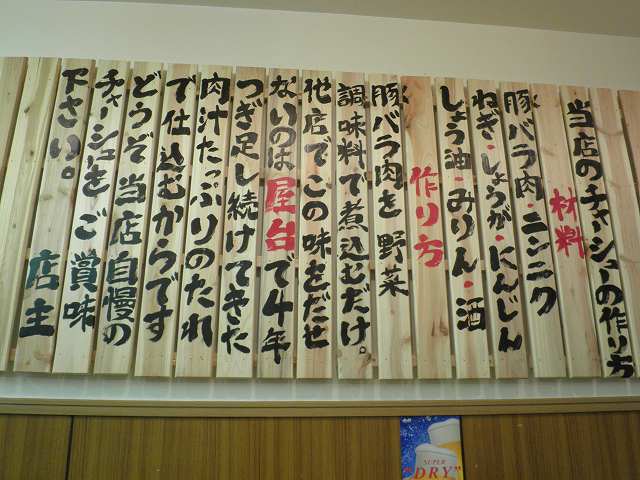 当店のチャーシューの作り方
材料
豚バラ肉・ニンニク
ねぎ・しょうが・にんじん
しょう油・みりん・酒
作り方
豚バラ肉を野菜
調味料で煮込むだけ。
他店でこの味をだせ
ないのは屋台で4年
つぎ足し続けてきた
肉汁たっぷりのたれ
で仕込むからです
どうぞ当店自慢の
チャーシューをご賞味
下さい。
店主
SUPER
"DRY"